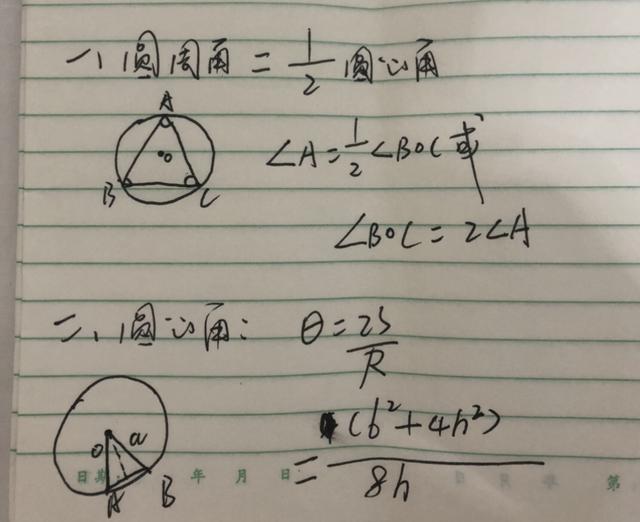 一、圆周角 = 1/2 圆心角
A
O
B C
∠A = 1/2 ∠BOC 或
∠BOC = 2∠A
二、圆心角: θ = 2S/R
= (b²+4h²)/8h
O a
A B
日期 年 月 日
第